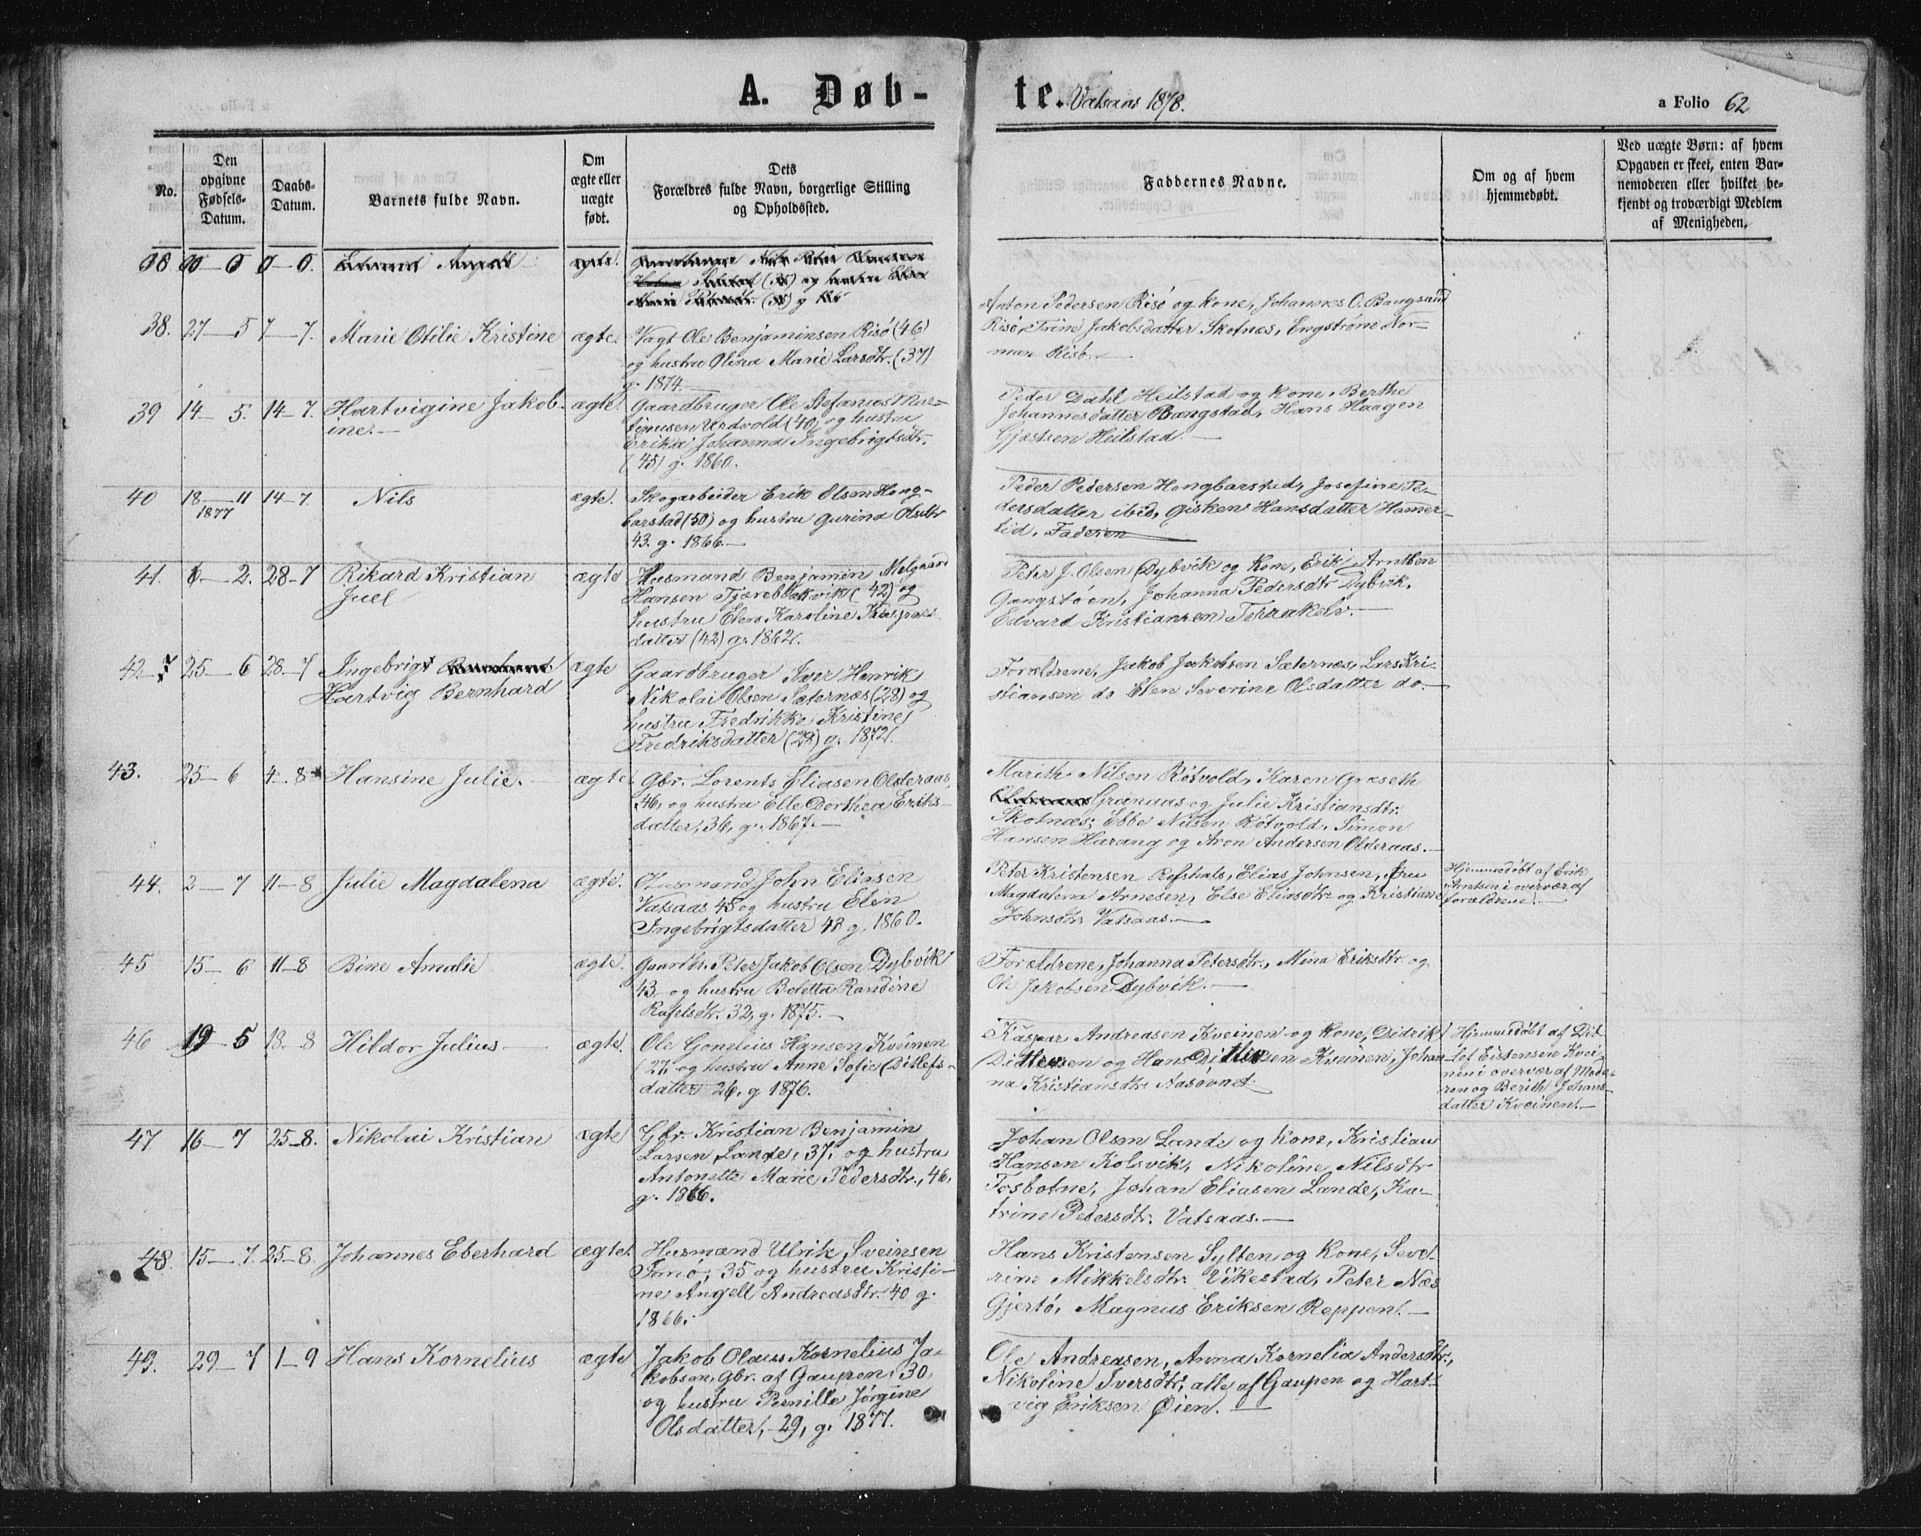 A. Døb-
te. Vatsaas 1878.
a Folio 62
No.
Den opgivne Fødsels-Datum.
Daabs-Datum.
Barnets fulde Navn.
Om ægte eller uægte født.
Dets Forældres fulde Navn, borgerlige Stilling og Opholdssted.
Faddernes Navne.
Om og af hvem hjemmedøbt.
Ved uægte Børn: af hvem Opgaven er skeet, enten Barnemoderen eller hvilket bekjendt og troværdigt Medlem af Menigheden.
38. 27-5 7-7. Marie Otilie Kristine ægte. Vagt Ole Benjaminsen Risö (46)
og hustru Olina Marie Larsdtr. (37)
g. 1874.
Anton Pedersen Risö og kone, Johannes O. Bangsund
Risö, Trine Jakobsdatter Skotnes, Engström Nor-
man Risö.
39 14-5. 14-7. Hartvigine Jakob-
ine.-
ægte. Gaardbruger Ole Stefanus
Urdvold (40) og hustru
Erika Johanna Ingebrigtsdtr.
(45) g. 1860.
Peder Dahl Heilstad og kone, Berthe
Johannesdatter Bangstad, Hans Haagen
Heilstad.-
40 18-11 1877 14-7. Nils ægte. Skogarbeider Erik Olsen Hong-
barstad (50) og hustru Gurina Olsdtr
43. g. 1866.-
Peder Pedersen Hongbarstad, Josefine Pe-
dersdatter ibid, Gisken Hansdatter Hamer-
lid. Faderen
41. 6-2. 28-7 Rikard Kristian
Juel
ægte Husmand Benjamin Melgaard
Hansen Tjærebbakvik (42) og
hustru Elen Karoline Kaspars-
datter (42) g. 1862.
Peter J. Olsen Dybvik og kone, Erik Arntsen
Gangstöen, Johanna Pedersdtr Dybvik,
Edvard Kristiansen Terraakelv.-
42 25-6 28-7 Ingebrigt
Hartvig Bernhard
ægte Gaardbruger Iver Henrik
Nikolai Olsen Sæternæs (28) og
hustru Fredrikke Kristine
Fredriksdatter (29) g. 1872.
Forældrene, Jakob Jakobsen Sæternæs, Lars Kri-
stiansen do Elen Severine Olsdatter do.-
43. 25-6 4-8 Hansine Julie. ægte Gbr. Lorents Eliasen Olderaas,
46, og hustru Elle Dorthea Eriks-
datter, 36, g. 1867.-
Marith Nilsen Rötvold, Karen Græseth
Granaas og Julie Kristiansdtr.
Skotnæs, Ebbe Nilsen Rötvold, Simon
Hansen Harang og Aron Andersen Olderaas.-
44. 2-7 11-8 Julie Magdalena ægte. Husmand John Eliasen
Vatsaas 45 og hustru Elen
Ingebrigtsdatter 43 g. 1860.
Peter Kristensen Refshals, Elias Johnsen, fru
Magdalena Arnesen, Else Eliasdtr og Kristiane
Johnsdtr Vatsaas.-
Hjemmedöbt af Erik
Arntsen i overvær af
forældrene.
45 15-6 11-8 Bine Amalie ægte. Gaardbr. Peter Jakob Olsen Dybvik
43 og hustru Boletta Randine
Rafelsdtr. 32, g. 1875.-
Forældrene, Johanna Petersdtr., Mina Eriksdtr og
Ole Jakobsen Dybvik.-
46 19-5 18-8 Hildor Julius ægte. Ole Hansen Kveinen
27 og hustru Anne Sofie Ditlefs-
datter 26, g 1876.
Kaspar Andreasen Kveinen og kone, Didrik
Ditlevsen og Hans Ditlevsen Kveinen, Johan-
na Kristiansdtr. Aasovnet.
Hjemmedöbt af Dit-
lef Eistensen Kvei-
nen i overvær af Mode-
ren og Berith Johans-
datter Kveinen.-
47 16-7 25-8. Nikolai Kristian ægte Gbr. Kristian Benjamin
Larsen Lande, 37, og hustru
Antonette Marie Pedersdtr., 46,
g. 1866.
Johan Olsen Lande og kone, Kristian
Hansen Kolsvik, Nikoline Nilsdtr
Tosbotne, Johan Eliasen Lande, Ka-
trine Pedersdtr. Vatsaas.-
48. 15-7. 25-8. Johannes Eberhard ægte. Husmand Ulrik Sveinsen
35 og hustru Kristi-
ne Angell Andreasdtr. 40 g.
1866.
Hans Kristensen Sylten og Kone, Seve-
rine Mikkelsdtr. Vikestad, Peter Næs
Gjertö, Magnus Eriksen Reppen.-
49. 29-7 1-9 Hans Kornelius ægte Jakob Olaus Kornelius Ja-
kobsen, Gbr. af Gaupen, 30,
og hustru Pernille Jörgine
Olsdatter, 29, g. 1877.
Ole Andreasen, Anna Kornelia Andersdtr.,
Nikoline Iversdtr, alle af Gaupen og Hart-
vig Eriksen Øien.-